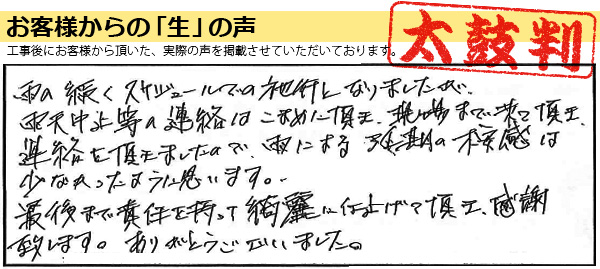 お客様からの「生」の声
工事後にお客様から頂いた、実際の声を掲載させていただいております。
太鼓判
雨の続くスケジュールでの施行となりましたが、
雨天中止等の連絡はこまめに頂き、現場まで来て頂き、
連絡を頂きましたので、雨による延期の検感は
少なかったように思います。
最後まで責任を持って綺麗に仕上げて頂き、感謝
致します。ありがとうございいました。